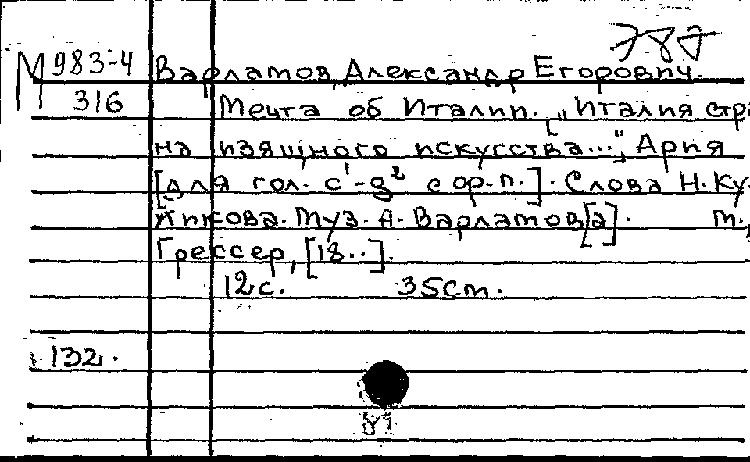 787
М 983-4 Варламов, Александр Егорович.
316 Мечта об Италии. ["Италия стр
на изящного искусства...", Ария
[для гол. c¹-g² с ор.п.]. Слова Н. Ку-
жикова. Муз. А. Варламов[а]. м.,
Грессер, [18..].
12с. 35см.
132.
81